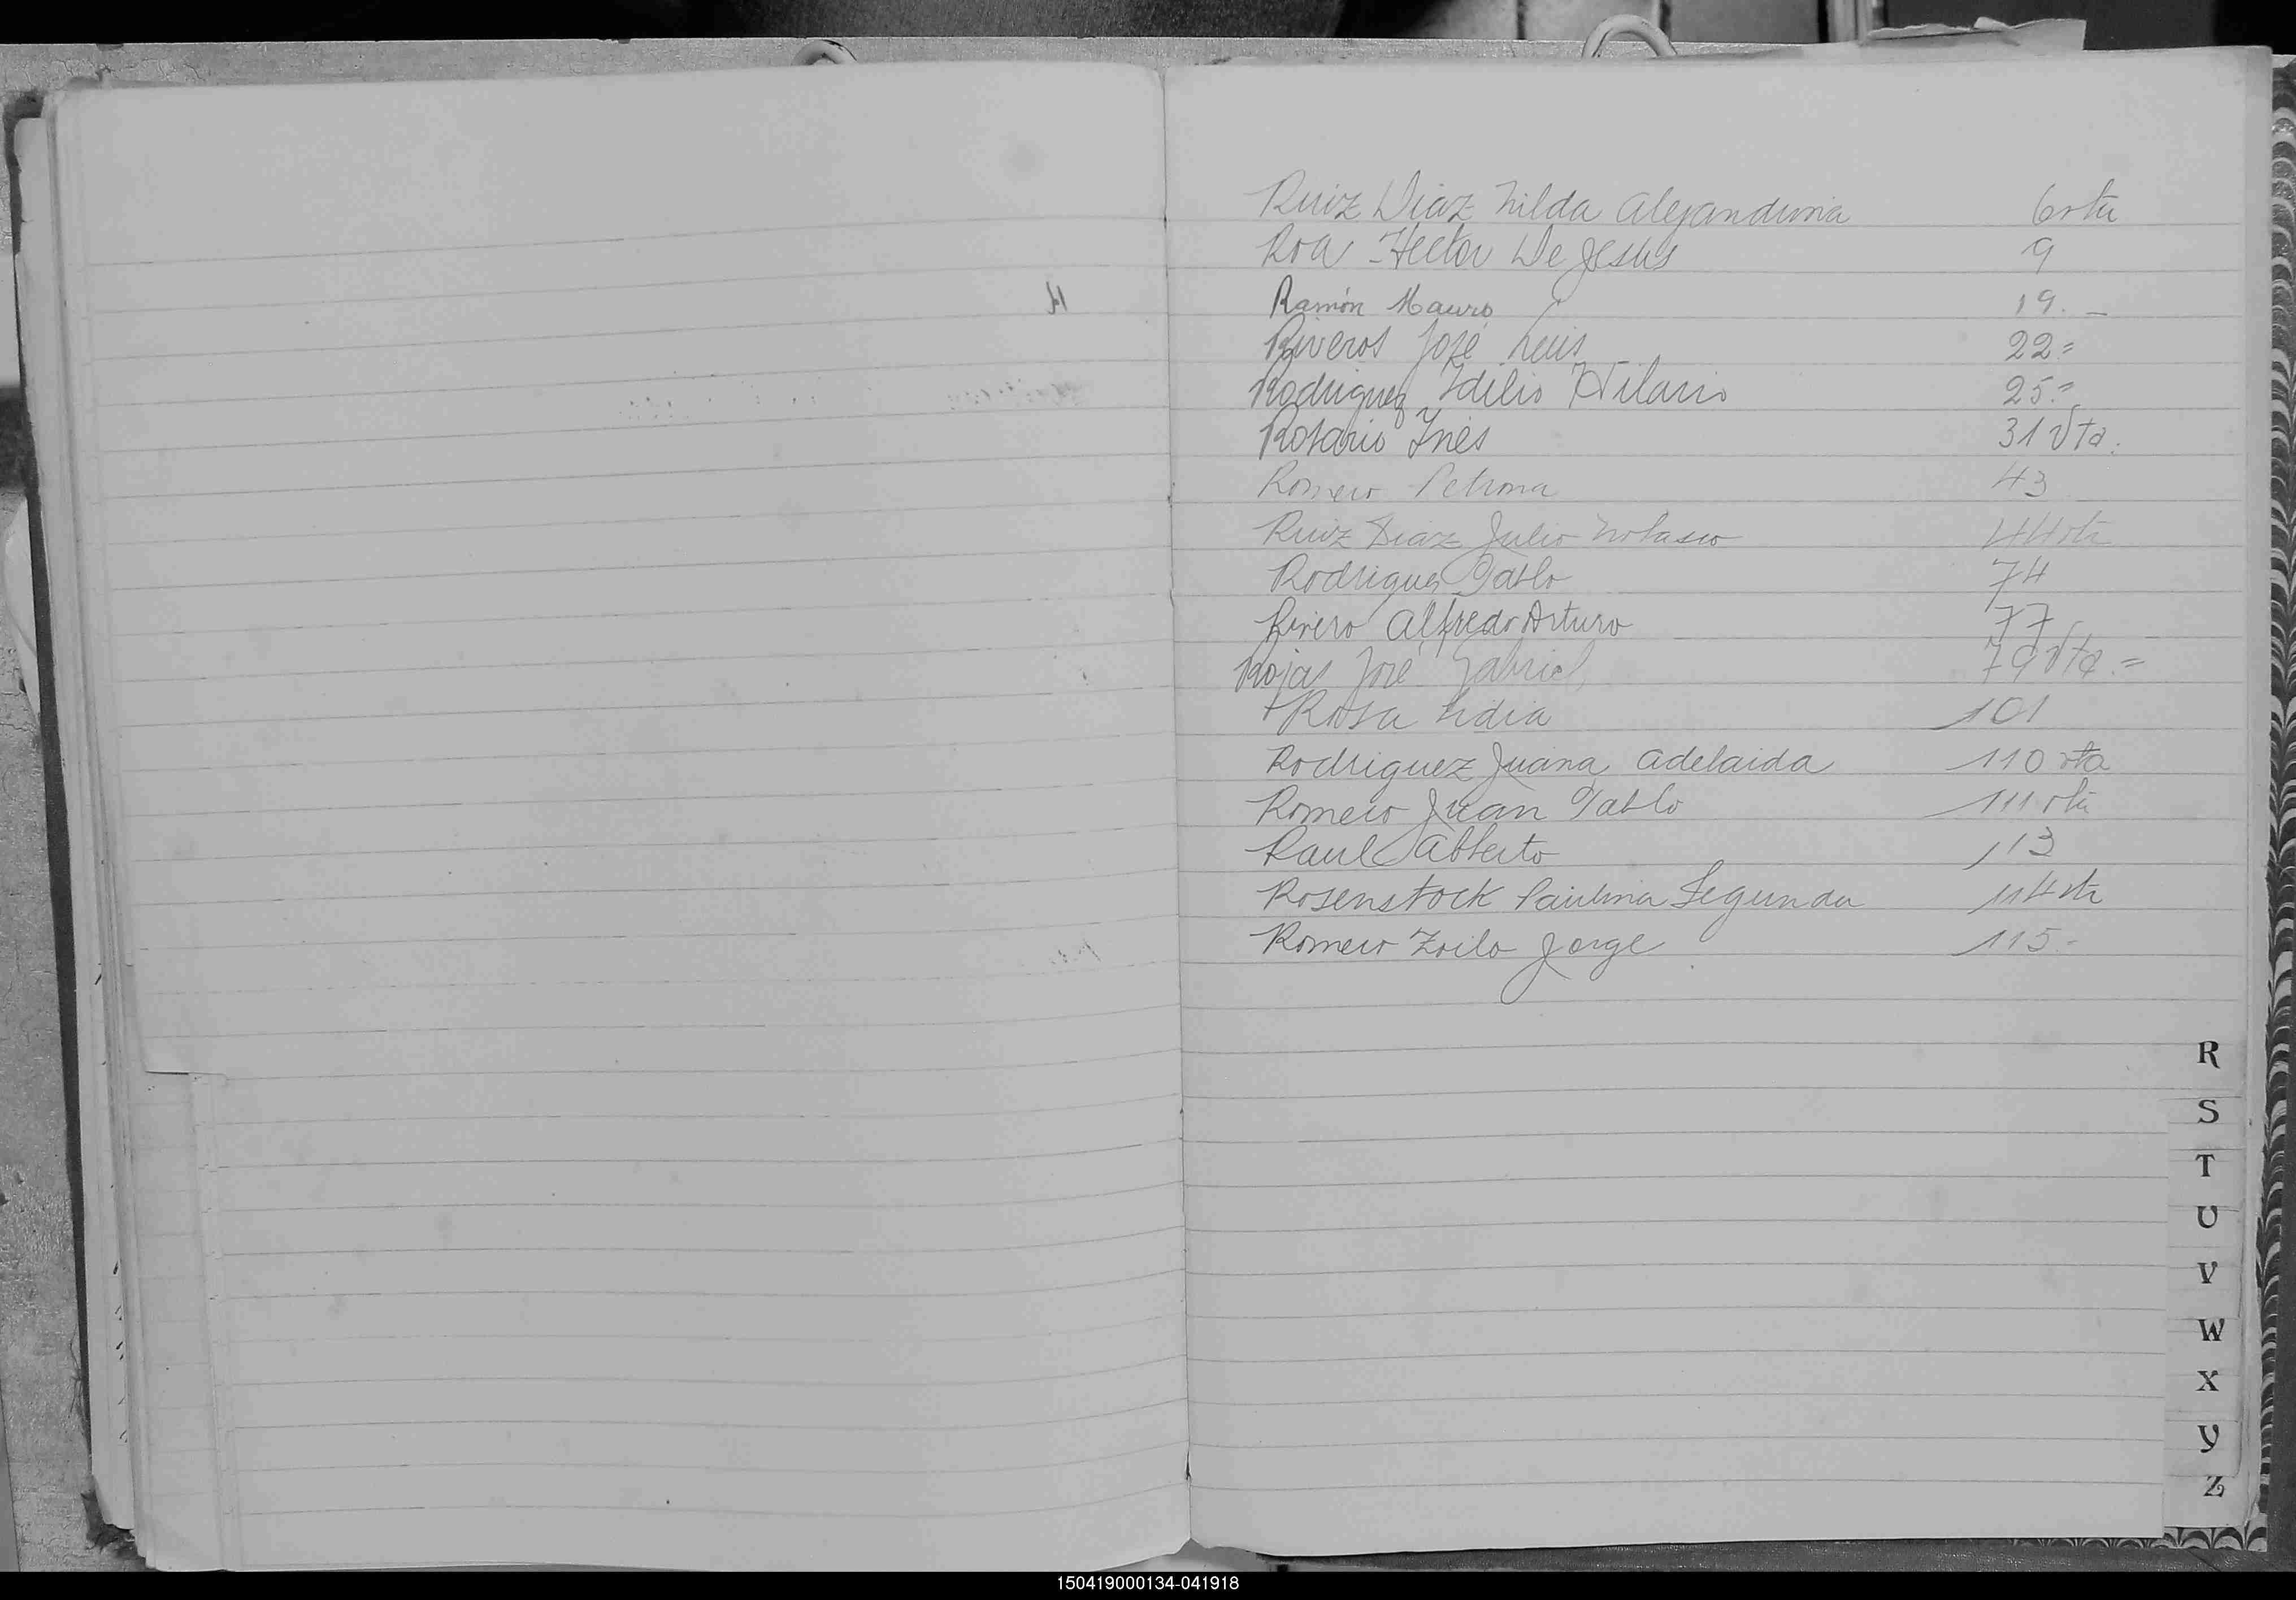 Ruiz Diaz Nilda Alejandrina 6 vta
Roa Hector De Jesús 9
Ramón Mauro 19. -
Riveros José Luis 22=
Rodriguez Idilio Hilario 25.=
Rosario Inés 31 Vta.
Romero Petrona 43
Ruiz Diaz Julio Nolasco 44 vta
Rodriguez Pablo 74
Rivero Alfredo Arturo 77
Rojas José Gabriel 79 Vta.=
Rosa Lidia 101
Rodriguez Juana Adelaida 110 vta
Romero Juan Pablo 111 vta
Raul Alberto 113
Rosenstock Paulina Segunda 114 vta
Romero Zoilo Jorge 115-
R
S
T
U
V
W
X
Y
Z
150419000134-041918